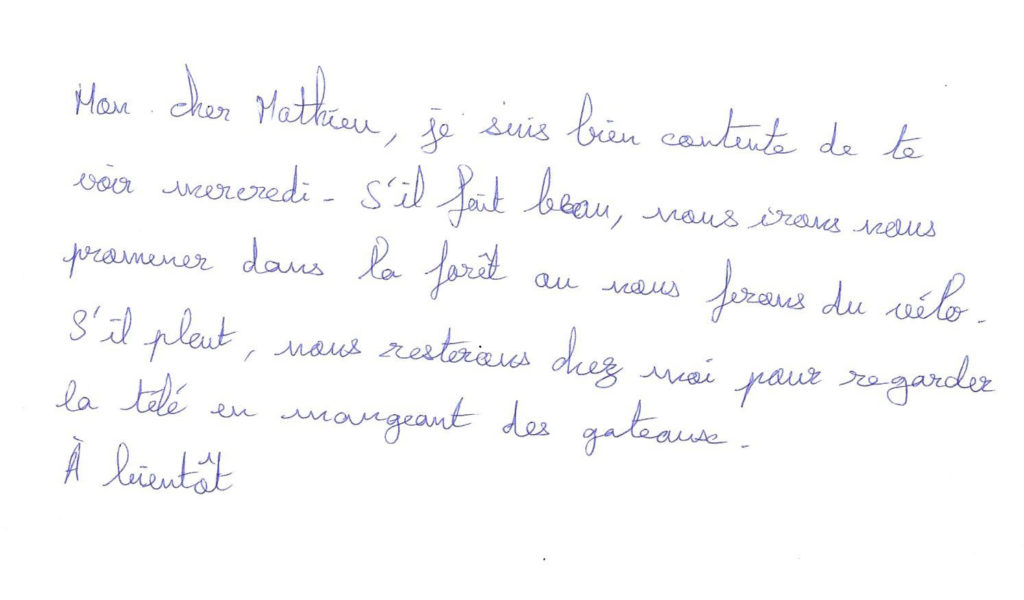 Mon cher Mathieu, je suis bien contente de te
voir mercredi. S'il fait beau, nous irons nous
promener dans la forêt ou nous ferons du vélo.
S'il pleut, nous resterons chez moi pour regarder
la télé en mangeant des gateaux.
À bientôt